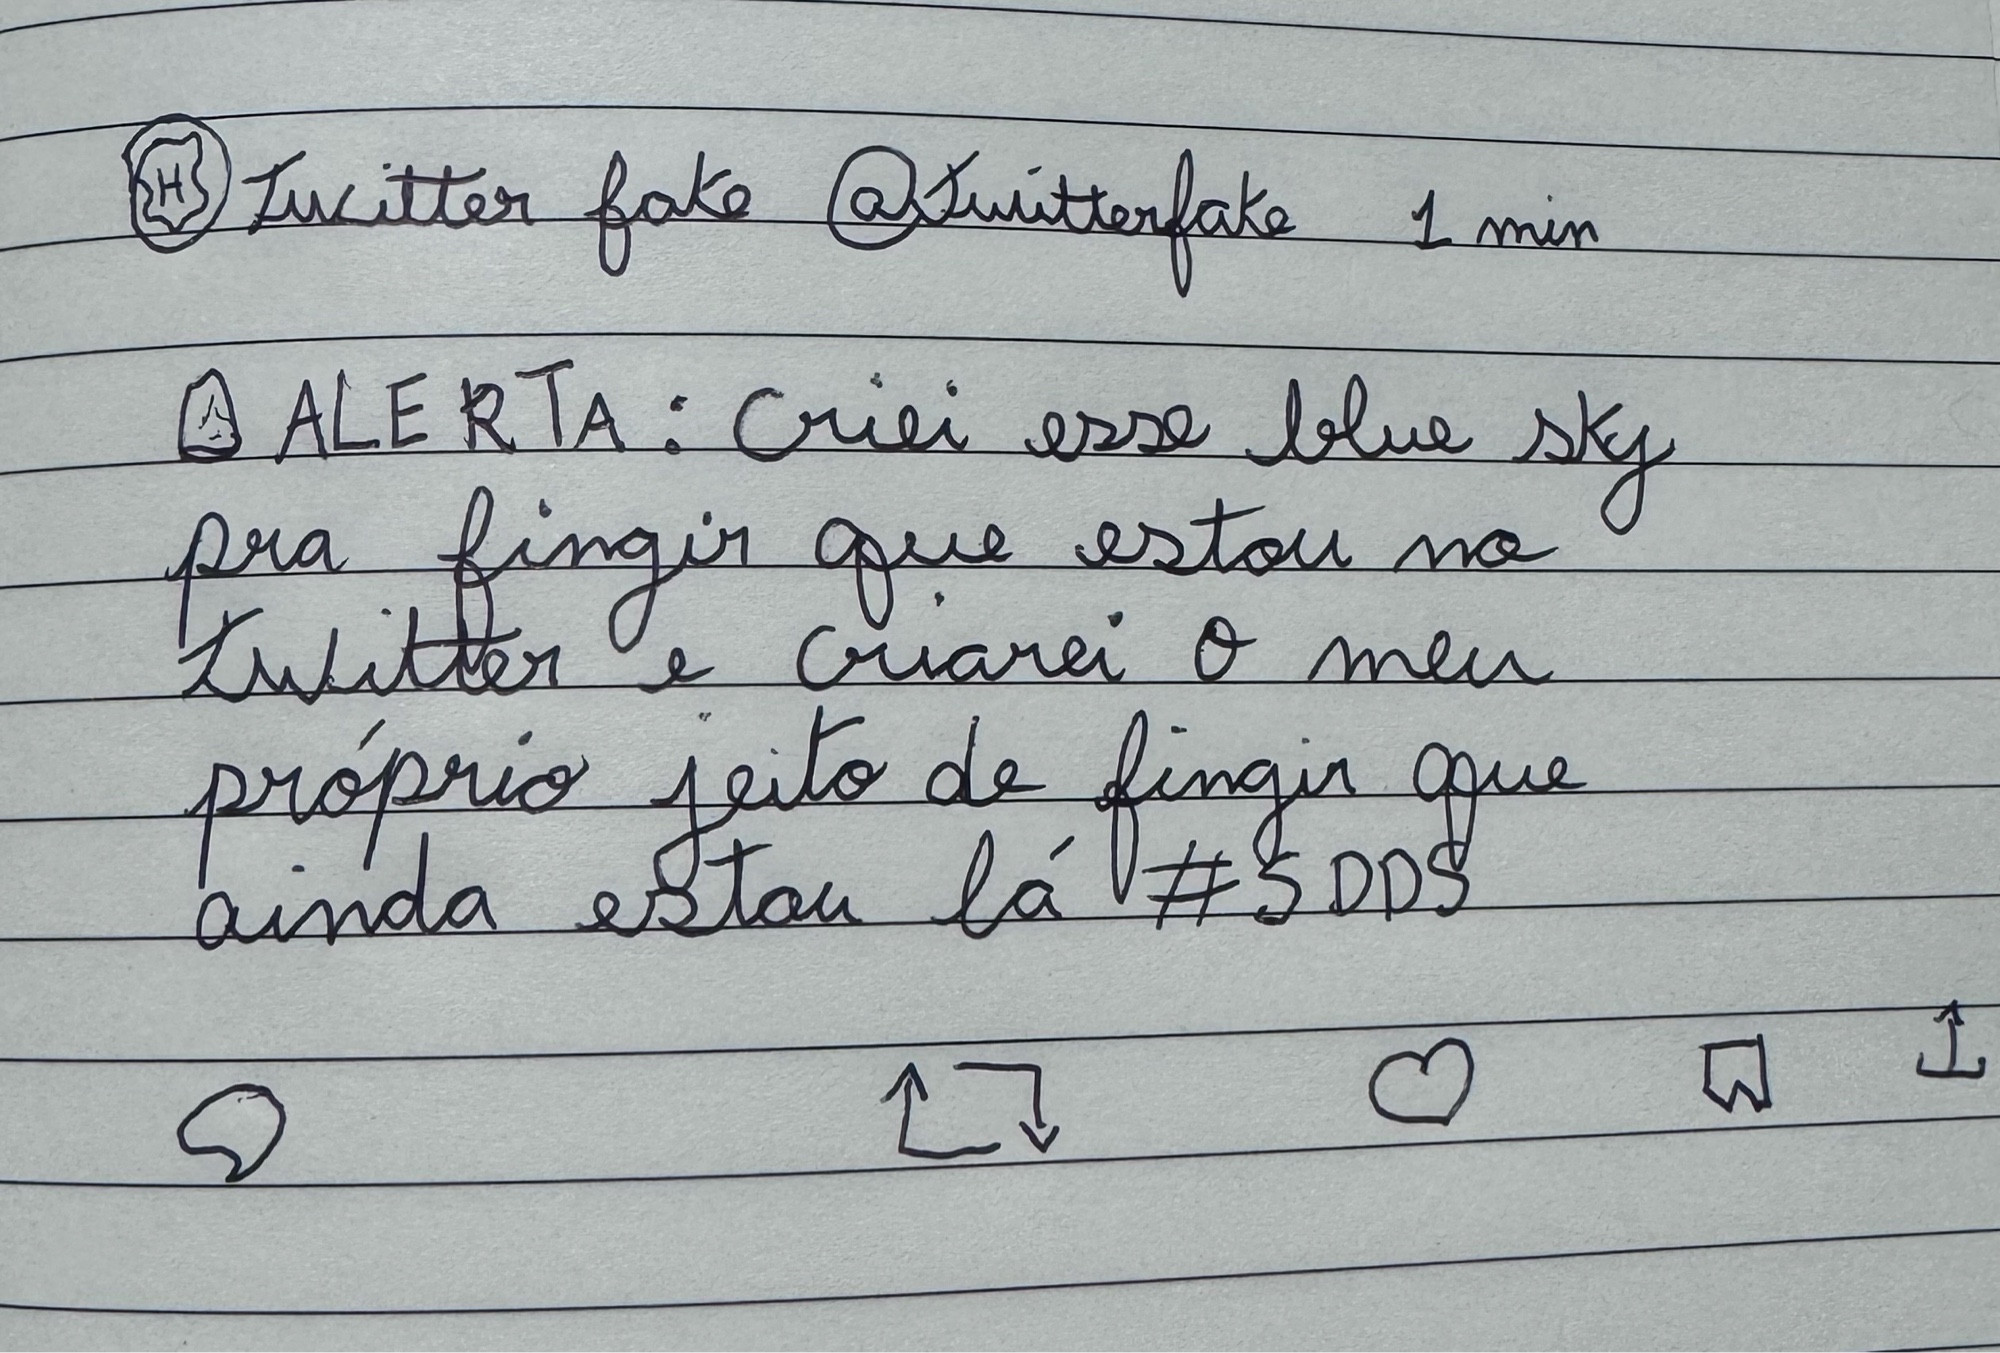 H Twitter fake @twitterfake 1 min
ALERTA: Criei esse blue sky
pra fingir que estou no
twitter e criarei o meu
próprio jeito de fingir que
ainda estou lá #SDDS